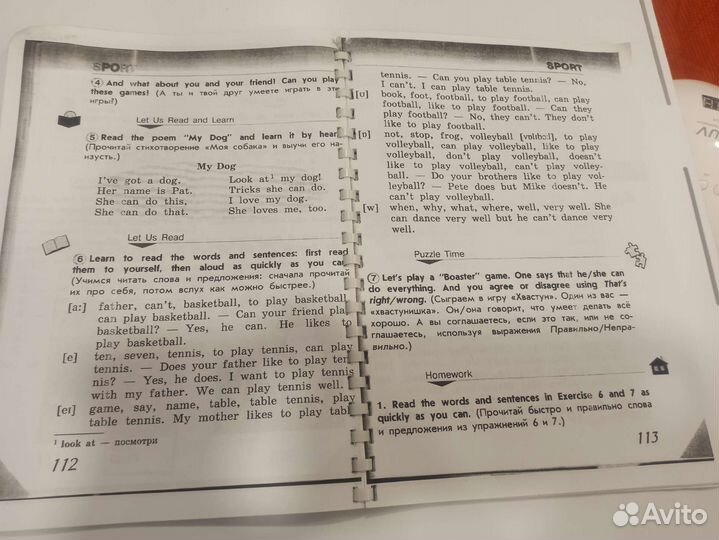 SPORT
④ And what about you and your friend? Can you play
these games? (А ты и твой друг умеете играть в эти
игры?)
Let Us Read and Learn
⑤ Read the poem "My Dog" and learn it by heart.
(Прочитай стихотворение «Моя собака» и выучи его на-
изусть.)
My Dog
I've got a dog.
Her name is Pat.
She can do this,
She can do that.
Look at¹ my dog!
Tricks she can do.
I love my dog.
She loves me, too.
Let Us Read
⑥ Learn to read the words and sentences: first read
them to yourself, then aloud as quickly as you can.
(Учимся читать слова и предложения: сначала прочитай
их про себя, потом вслух как можно быстрее.)
[a:] father, can't, basketball, to play basketball,
can play basketball. — Can your friend play
basketball? — Yes, he can. He likes to
play basketball.
[e] ten, seven, tennis, to play tennis, can play
tennis. — Does your father like to play ten-
nis? — Yes, he does. I want to play tennis
with my father. We can play tennis well.
[eɪ] game, say, name, table, table tennis, play
table tennis. My mother likes to play table
¹ look at — посмотри
112
SPORT
tennis. — Can you play table tennis? — No,
I can't. I can play table tennis.
[ʊ] book, foot, football, to play football, can play
football, like to play football. — Can they
play football? — No, they can't. They don't
like to play football.
[ɒ] not, stop, frog, volleyball [vɒlɪbɔ:l], to play
volleyball, can play volleyball, like to play
volleyball, don't play volleyball, doesn't
like to play volleyball, can't play volley-
ball. — Do your brothers like to play vol-
leyball? — Pete does but Mike doesn't. He
can't play volleyball.
[w] when, why, what, where, well, very well. She
can dance very well but he can't dance very
well.
Puzzle Time
⑦ Let's play a "Boaster" game. One says that he/she can
do everything. And you agree or disagree using That's
right/wrong. (Сыграем в игру «Хвастун». Один из вас —
«хвастунишка». Он/она говорит, что умеет делать всё
хорошо. А вы соглашаетесь, если это так, или не со-
глашаетесь, используя выражения Правильно/Непра-
вильно.)
Homework
1. Read the words and sentences in Exercise 6 and 7 as
quickly as you can. (Прочитай быстро и правильно слова
и предложения из упражнений 6 и 7.)
113
Avito